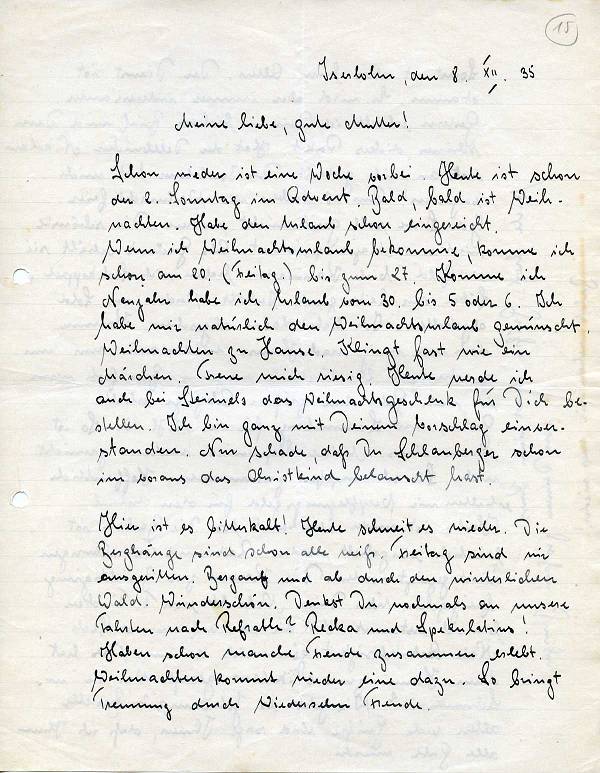 15
Iserlohn, den 8. XII. 35
Meine liebe, gute Mutter!
Schon wieder ist eine Woche vorbei. Heute ist schon
der 2. Sonntag im Advent. Bald, bald ist Weih-
nachten. Habe den Urlaub schon eingereicht.
Wenn ich Weihnachtsurlaub bekomme, komme ich
schon am 20. (Freitag.) bis zum 27. Komme ich
Neujahr habe ich Urlaub vom 30. bis 5 oder 6. Ich
habe mir natürlich den Weihnachtsurlaub gewünscht.
Weihnachten zu Hause. Klingt fast wie ein
Märchen. Freue mich riesig. Heute werde ich
auch bei Steimels das Weihnachtsgeschenk für Dich be-
stellen. Ich bin ganz mit Deinem Vorschlag einver-
standen. Nur schade, daß Du Schlauberger schon
im voraus das Christkind belauscht hast.
Hier ist es bitterkalt. Heute schneit es wieder. Die
Berghänge sind schon alle weiß. Freitag sind wir
ausgeritten. Bergauf und ab durch den winterlichen
Wald. Wunderschön. Denkst Du nochmals an unsere
Fahrten nach Refrath? Recka und Spekulatius!
Haben schon manche Freude zusammen erlebt.
Weihnachten kommt wieder eine dazu. So bringt
Trennung durch Wiedersehn Freude.